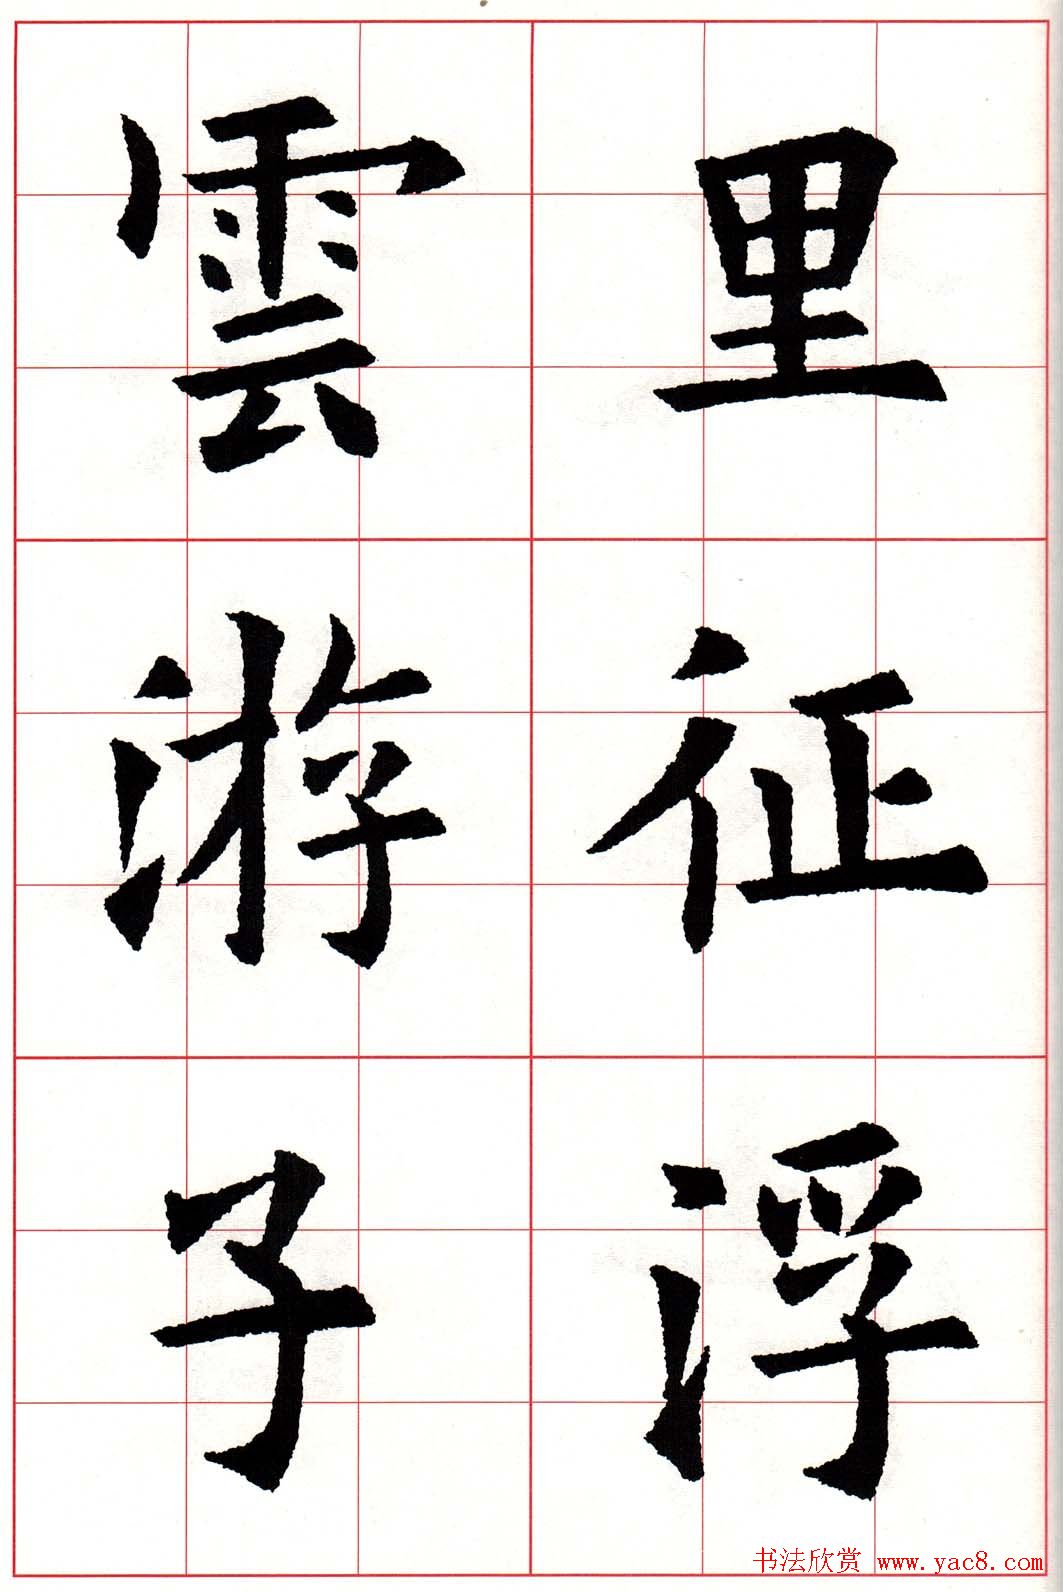 里征浮
雲游子
书法欣赏 www.yac8.com